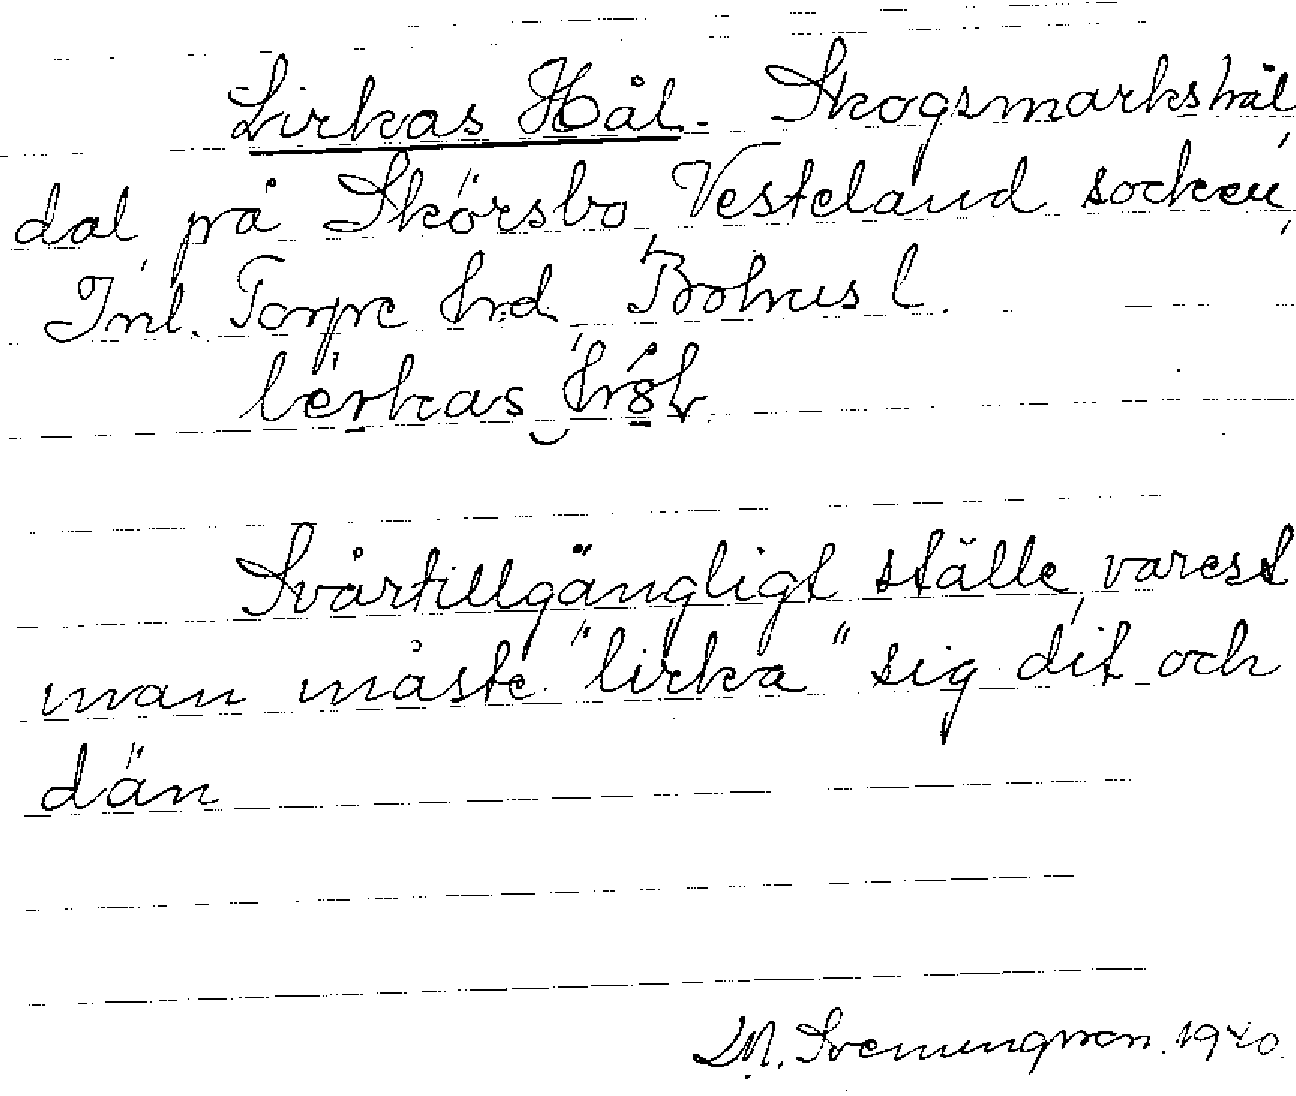 Lirkas Hål. Skogsmarkshål,
dal, på Skörsbo, Vesteland socken,
Inl. Torpe hrd, Bohus l.
Svårtillgängligt ställe, varest
man måste "lirka" sig dit och
dän
1940.